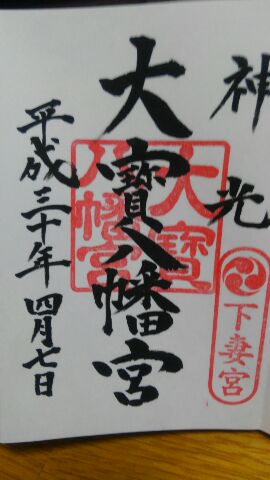 神光
下妻宮
大寳八幡宮
大寳八幡宮
平成三十年四月七日